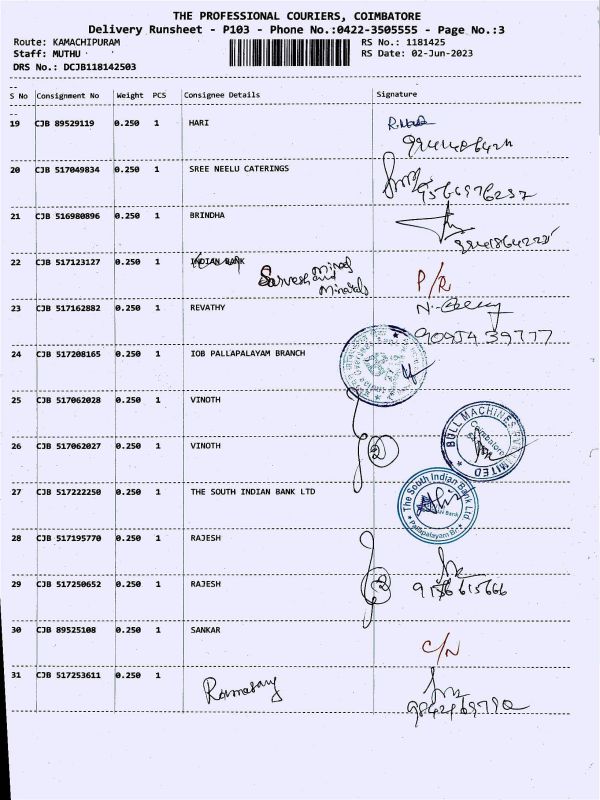 THE PROFESSIONAL COURIERS, COIMBATORE
Delivery Runsheet - P103 - Phone No.:0422-3505555 - Page No.:3
Route: KAMACHIPURAM RS No.: 1181425
Staff: MUTHU RS Date: 02-Jun-2023
DRS No.: DCJB118142503
S No Consignment No Weight PCS Consignee Details Signature
19 CJB 89529119 0.250 1 HARI
20 CJB 517049834 0.250 1 SREE NEELU CATERINGS
21 CJB 516980896 0.250 1 BRINDHA
22 CJB 517123127 0.250 1 INDIAN BANK
Sarvesh Mines and Minerals P/R
23 CJB 517162882 0.250 1 REVATHY
24 CJB 517208165 0.250 1 IOB PALLAPALAYAM BRANCH
25 CJB 517062028 0.250 1 VINOTH
26 CJB 517062027 0.250 1 VINOTH 2
BULL MACHINES PVT LIMITED
Coimbatore
27 CJB 517222250 0.250 1 THE SOUTH INDIAN BANK LTD
The South Indian Bank Ltd.
Pallapalayam Br.
28 CJB 517195770 0.250 1 RAJESH
29 CJB 517250652 0.250 1 RAJESH 2
30 CJB 89525108 0.250 1 SANKAR C/N
31 CJB 517253611 0.250 1
Ramasamy